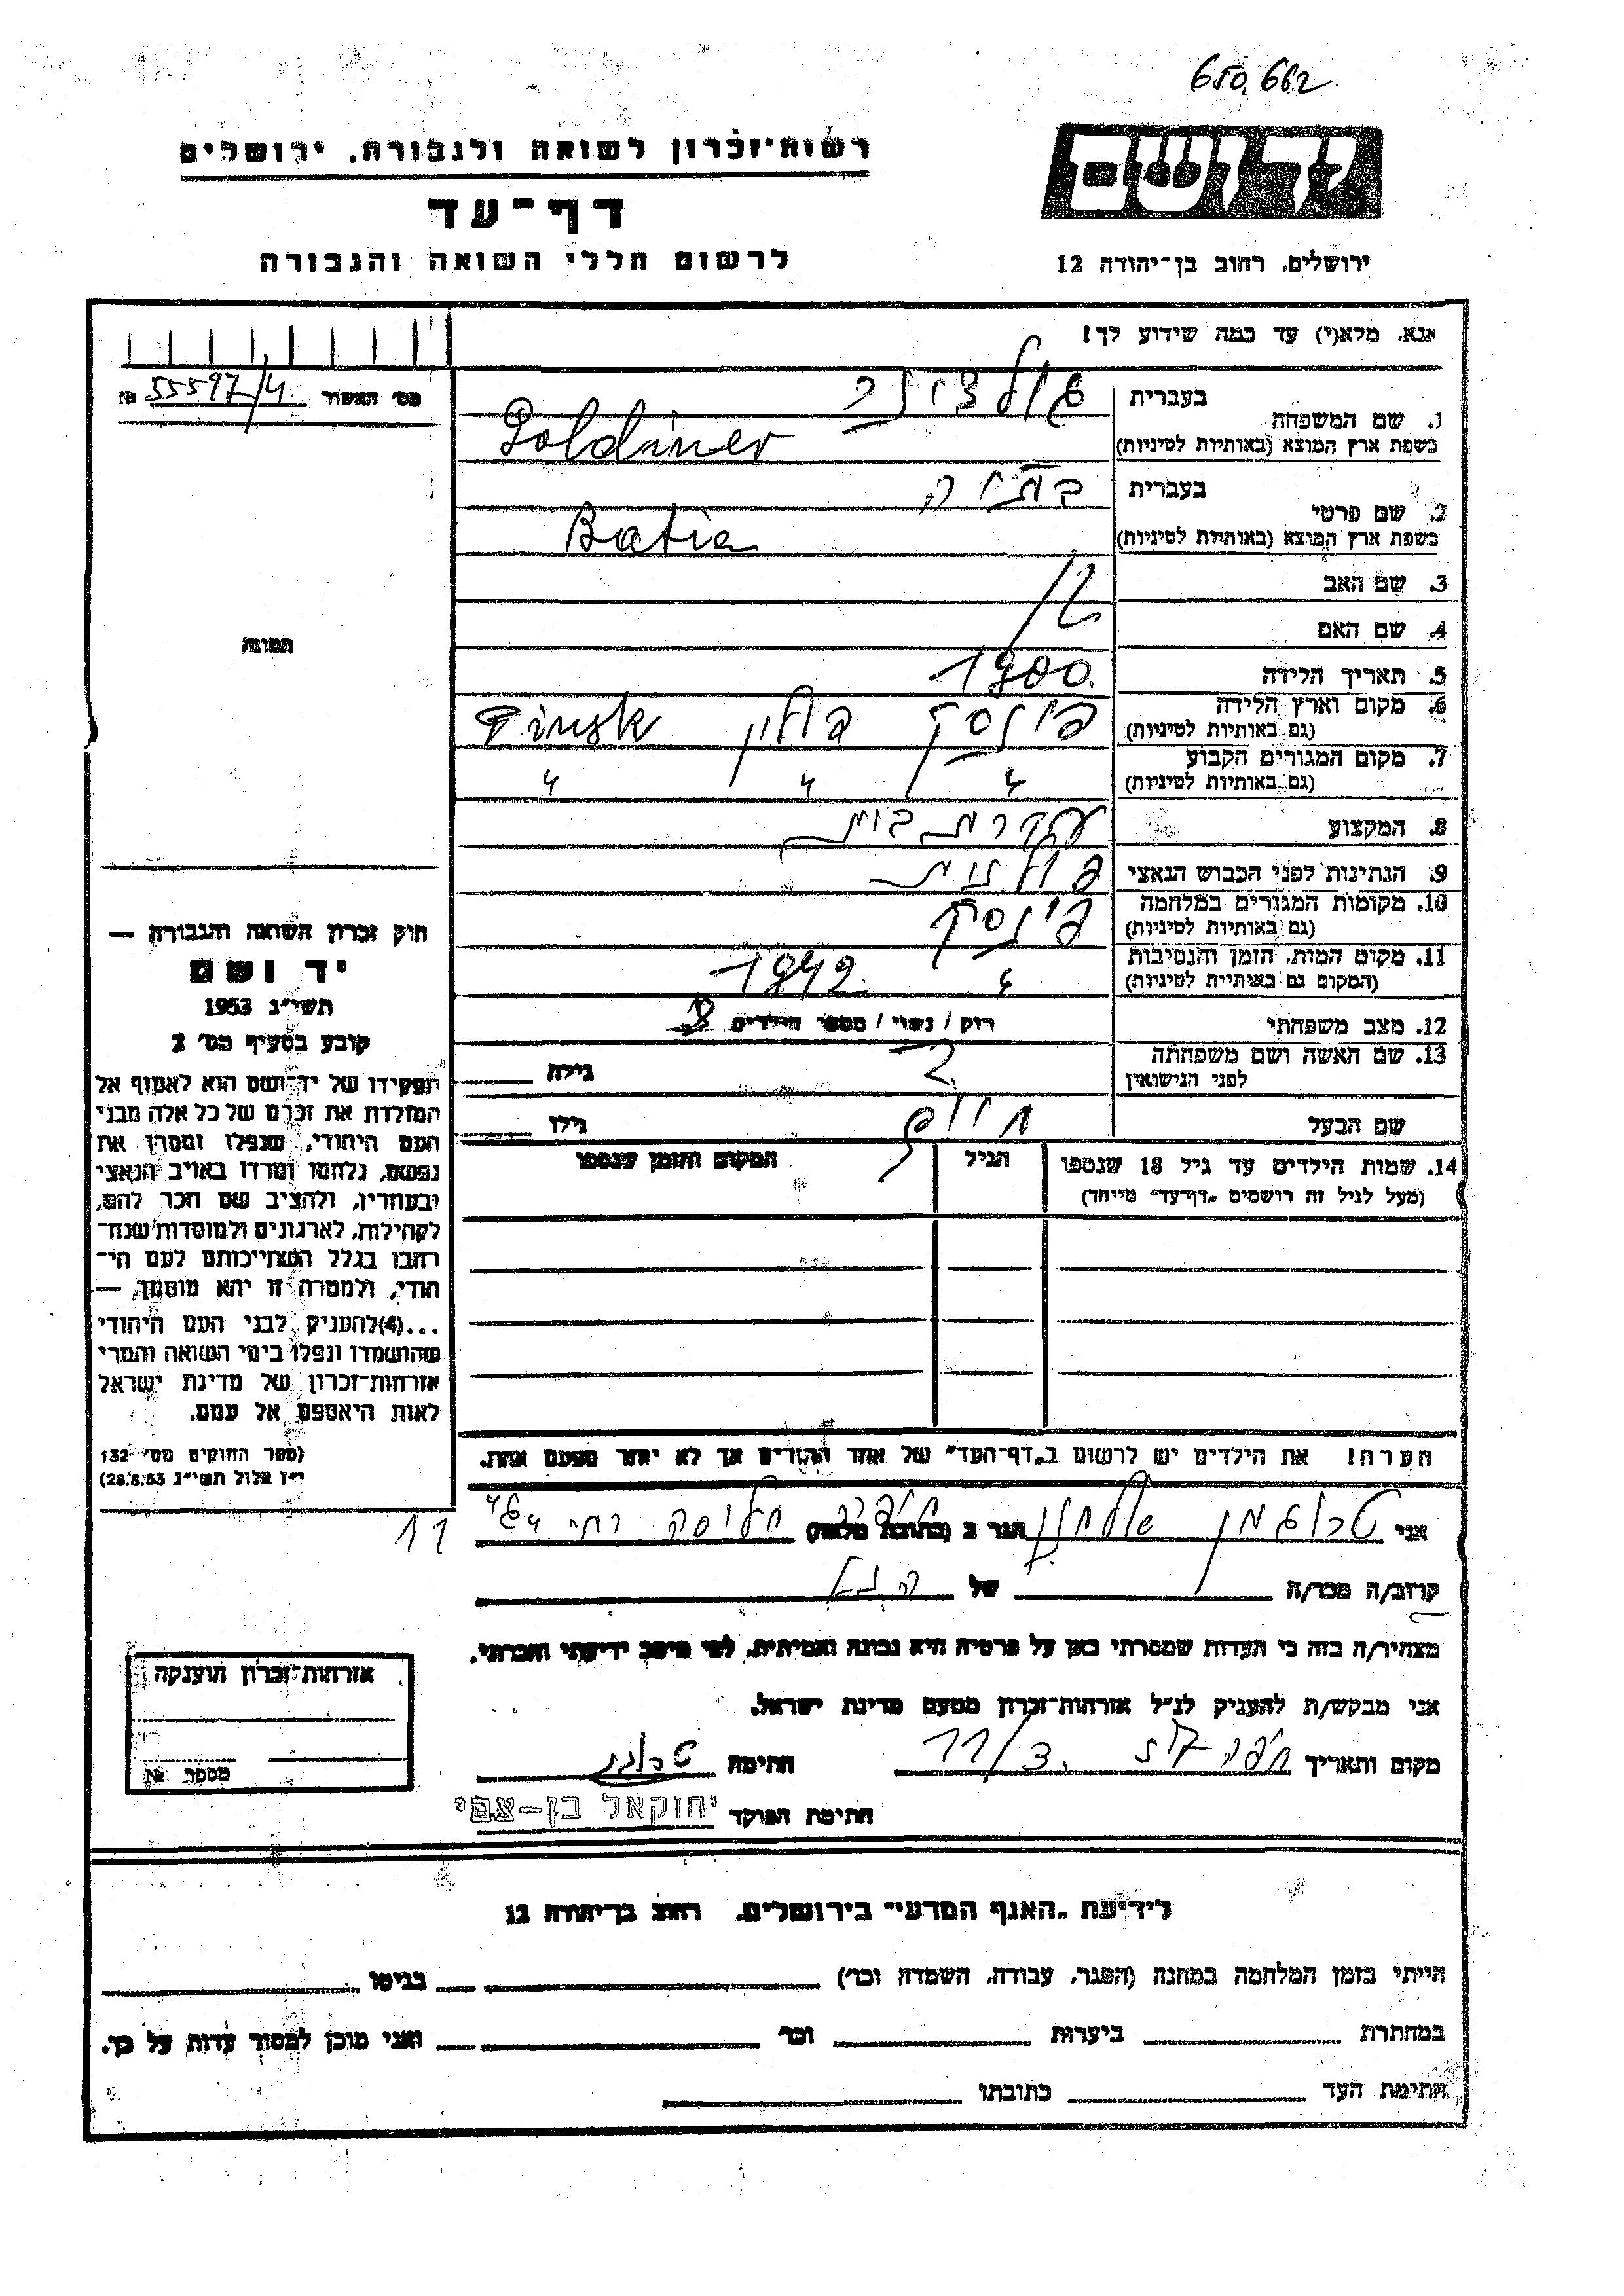 650,662
רשות־זכרון לשואה ולגבורה, ירושלים
יד ושם
דף־עד
לרשום חללי השואה והגבורה
ירושלים, רחוב בן־יהודה 12
אנא, מלא(י) עד כמה שידוע לך!
מס׳ האשור 55597/4 №
1. שם המשפחה
בעברית
בשפת ארץ המוצא (באותיות לטיניות) Goldiner
2. שם פרטי
בעברית בתיה
בשפת ארץ המוצא (באותיות לטיניות) Batia
3. שם האב
4. שם האם
תמונה
5. תאריך הלידה 1900.
6. מקום וארץ הלידה פינסק פולין Pinsk
(גם באותיות לטיניות)
7. מקום המגורים הקבוע " " "
(גם באותיות לטיניות)
8. המקצוע עקרת בית
9. הנתינות לפני הכבוש הנאצי פולנית
10. מקומות המגורים במלחמה פינסק
(גם באותיות לטיניות)
11. מקום המות, הזמן והנסיבות " 1942.
(המקום גם באותיות לטיניות)
12. מצב משפחתי רווק / נשוי / מספר הילדים
13. שם האשה ושם משפחתה
לפני הנישואין
גילה
שם הבעל חיים גילו
14. שמות הילדים עד גיל 18 שנספו הגיל המקום והזמן שנספו
(מעל לגיל זה רושמים „דף־עד” מיוחד)
חוק זכרון השואה והגבורה —
יד ושם
תשי״ג 1953
קובע בסעיף מס׳ 2
תפקידו של יד־ושם הוא לאסוף אל
המולדת את זכרם של כל אלה מבני
העם היהודי, שנפלו ומסרו את
נפשם, נלחמו ומרדו באויב הנאצי
ובעוזריו, ולהציב שם וזכר להם,
לקהילות, לארגונים ולמוסדות שנח־
רבו בגלל השתייכותם לעם הי־
הודי, ולמטרה זו יהא מוסמך, —
...(4)להעניק לבני העם היהודי
שהושמדו ונפלו בימי השואה והמרי
אזרחות־זכרון של מדינת ישראל
לאות היאספם אל עמם.
(ספר החוקים מס׳ 132
י״ז אלול תשי״ג 28.8.53)
הערה! את הילדים יש לרשום ב„דף־העד” של אחד ההורים אך לא יותר מפעם אחת.
אני הגר ב (כתובת מלאה) חיפה חליסה רח׳
11
קרוב/ה מכר/ה של הנ״ל
מצהיר/ה בזה כי העדות שמסרתי כאן על פרטיה היא נכונה ואמיתית, לפי מיטב ידיעתי והכרתי.
אני מבקש/ת להעניק לנ״ל אזרחות־זכרון מטעם מדינת ישראל.
אזרחות־זכרון הוענקה
מספר №
מקום ותאריך חיפה 11/3. חתימה
חתימת הפוקד יחזקאל בן־צבי
לידיעת „האגף המדעי” בירושלים, רחוב בן־יהודה 12
הייתי בזמן המלחמה במחנה (הסגר, עבודה, השמדה וכו׳) בגיטו
במחתרת ביערות וכו׳ ואני מוכן למסור עדות על כך.
חתימת העד כתובתו